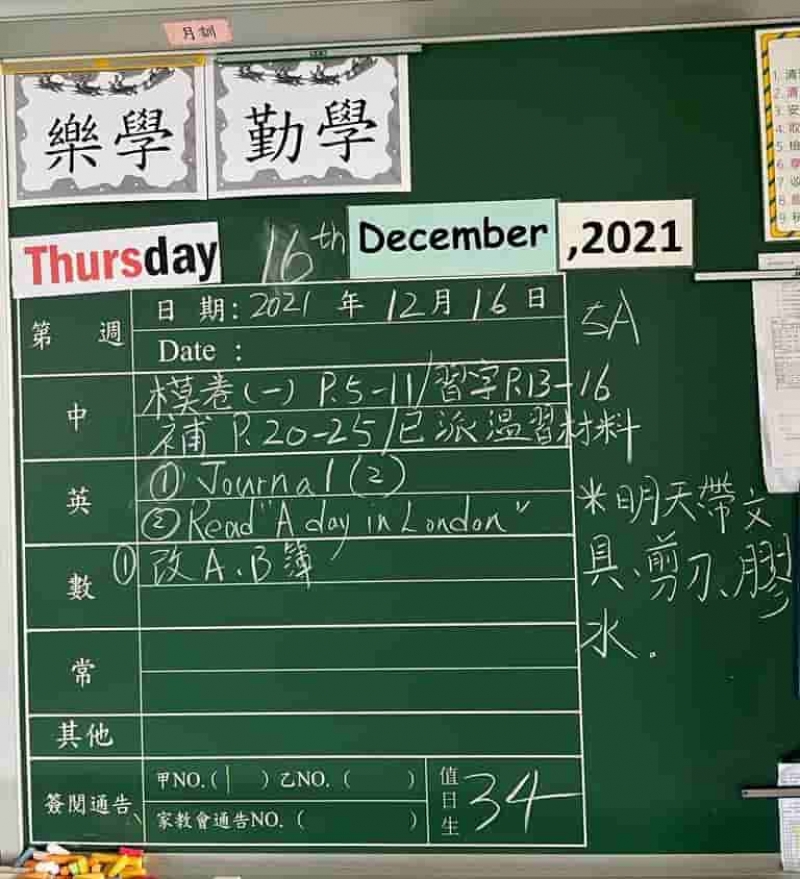 月訓
樂學 勤學
Thursday 16th December ,2021
第 週
日 期: 2021 年 12月 16 日
Date :
5A
中
模卷(一) P.5-11/習字P.13-16
補 P.20-25/已派溫習材料
英
① Journal (2)
② Read "A day in London"
數
① 改 A、B簿
常
其他
簽閱通告
甲NO.(1 ) 乙NO.( )
家教會通告NO.( )
值日生 34
*明天帶文
具、剪刀、膠
水.
1. 清
2. 清
3. 安
4. 取
5. 檢
6.
7. 收
8.
9.